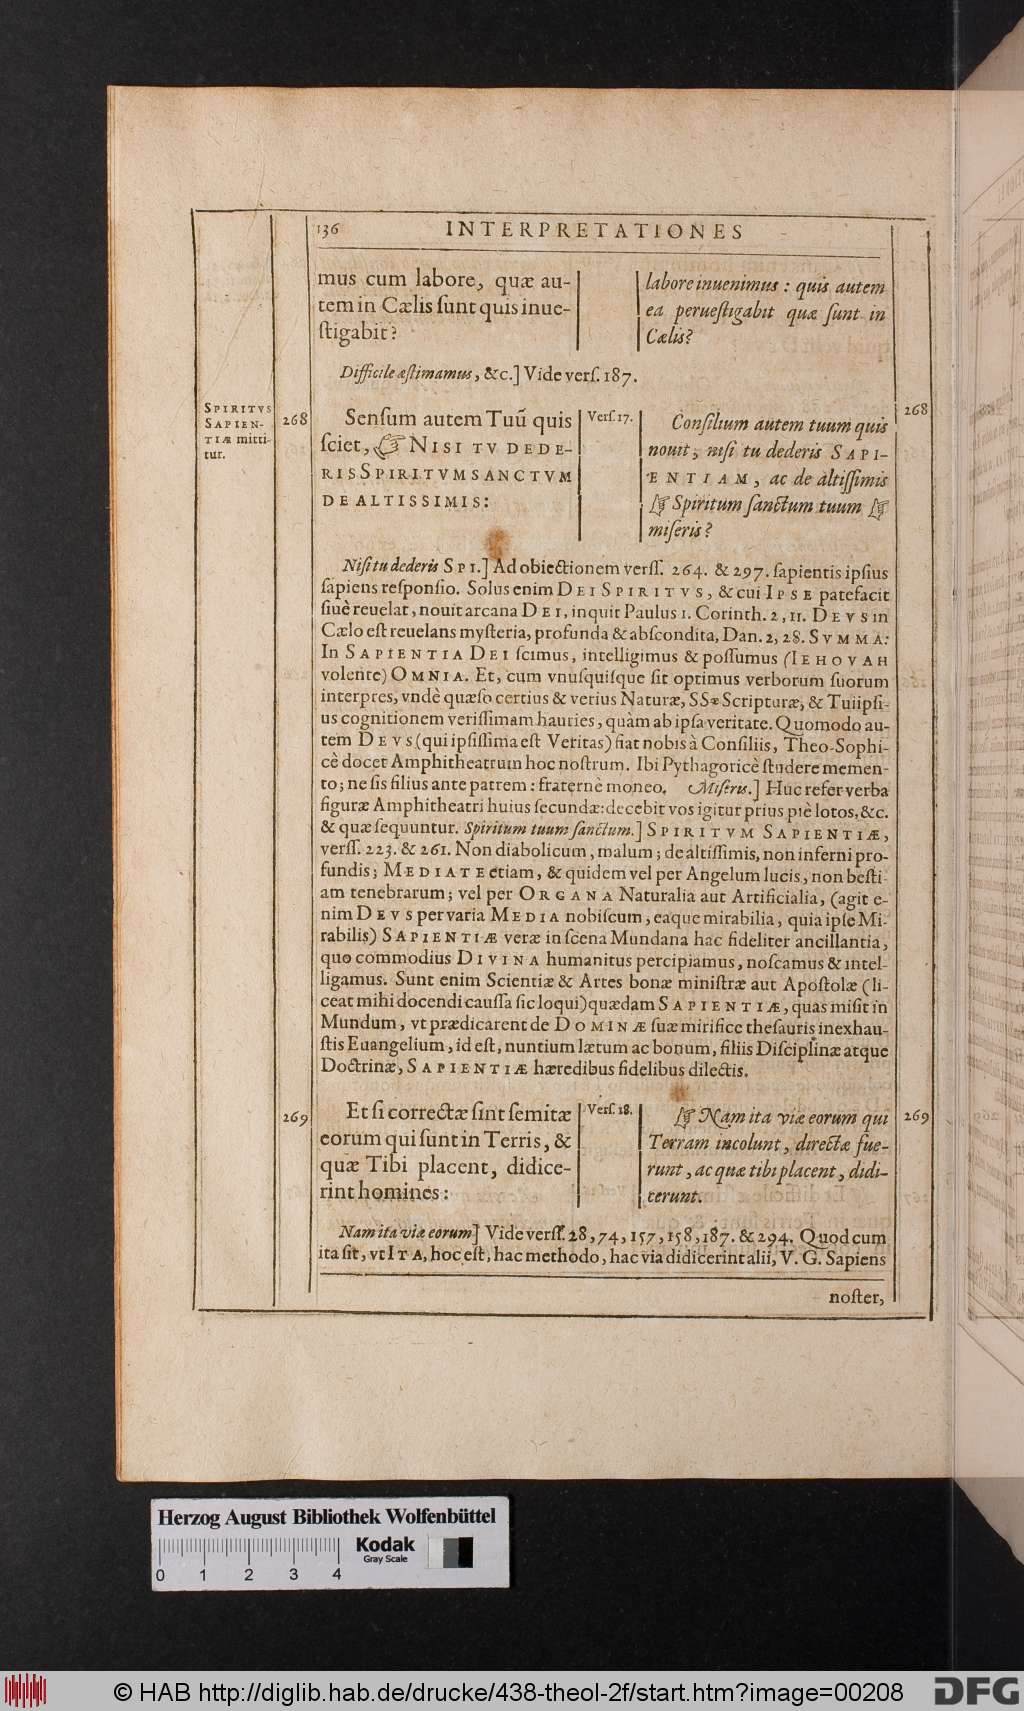 136 INTERPRETATIONES
mus cum labore, quæ au-
tem in Cælis ſunt quis inue-
ſtigabit?
labore inuenimus : quis autem
ea perueſtigabit quæ ſunt in
Cælis?
Difficile æſtimamus, &c.] Vide verſ. 187.
SPIRITVS
SAPIEN-
TIÆ mitti-
tur.
268
Senſum autem Tuū quis
ſciet, ☞ NISI TV DEDE-
RIS SPIRITVM SANCTVM
DE ALTISSIMIS:
Verſ. 17.
Conſilium autem tuum quis
nouit, niſi tu dederis SAPI-
ENTIAM, ac de altiſſimis
☞ Spiritum ſanctum tuum ☞
miſeris?
268
Niſi tu dederis SPI.] Ad obiectionem verſſ. 264. & 297. ſapientis ipſius
ſapiens reſponſio. Solus enim DEI SPIRITVS, & cui IPSE patefacit
ſiuè reuelat, nouit arcana DEI, inquit Paulus 1. Corinth. 2, 11. DEVS in
Cælo eſt reuelans myſteria, profunda & abſcondita, Dan. 2, 28. SVMMA:
In SAPIENTIA DEI ſcimus, intelligimus & poſſumus (IEHOVAH
volente) OMNIA. Et, cum vnuſquiſque ſit optimus verborum ſuorum
interpres, vndè quæſo certius & verius Naturæ, SSæ Scripturæ, & Tuiipſi-
us cognitionem veriſſimam hauries, quàm ab ipſa veritate. Quomodo au-
tem DEVS (qui ipſiſſima eſt Veritas) fiat nobis à Conſiliis, Theo-Sophi-
cè docet Amphitheatrum hoc noſtrum. Ibi Pythagoricè ſtudere memen-
to; ne ſis filius ante patrem : fraternè moneo. Miſeris.] Huc refer verba
figuræ Amphitheatri huius ſecundæ: decebit vos igitur prius piè lotos, &c.
& quæ ſequuntur. Spiritum tuum ſanctum.] SPIRITVM SAPIENTIÆ,
verſſ. 223. & 261. Non diabolicum, malum; de altiſſimis, non inferni pro-
fundis; MEDIATE etiam, & quidem vel per Angelum lucis, non beſti-
am tenebrarum; vel per ORGANA Naturalia aut Artificialia, (agit e-
nim DEVS per varia MEDIA nobiſcum, eaque mirabilia, quia ipſe Mi-
rabilis) SAPIENTIÆ veræ in ſcena Mundana hac fideliter ancillantia,
quo commodius DIVINA humanitus percipiamus, noſcamus & intel-
ligamus. Sunt enim Scientiæ & Artes bonæ miniſtræ aut Apoſtolæ (li-
ceat mihi docendi cauſſa ſic loqui) quædam SAPIENTIÆ, quas miſit in
Mundum, vt prædicarent de DOMINÆ ſuæ mirifice theſauris inexhau-
ſtis Euangelium, id eſt, nuntium lætum ac bonum, filiis Diſciplinæ atque
Doctrinæ, SAPIENTIÆ hæredibus fidelibus dilectis.
269
Et ſi correctæ ſint ſemitæ
eorum qui ſunt in Terris, &
quæ Tibi placent, didice-
rint homines :
Verſ. 18.
☞ Nam ita viæ eorum qui
Terram incolunt, directæ fue-
runt, ac quæ tibi placent, didi-
cerunt.
269
Nam ita viæ eorum] Vide verſſ. 28, 74, 157, 158, 187. & 294. Quod cum
ita ſit, vt ITA, hoc eſt, hac methodo, hac via didicerint alii, V. G. Sapiens
noſter,
Herzog August Bibliothek Wolfenbüttel
0 1 2 3 4
Kodak
Gray Scale
© HAB http://diglib.hab.de/drucke/438-theol-2f/start.htm?image=00208
DFG